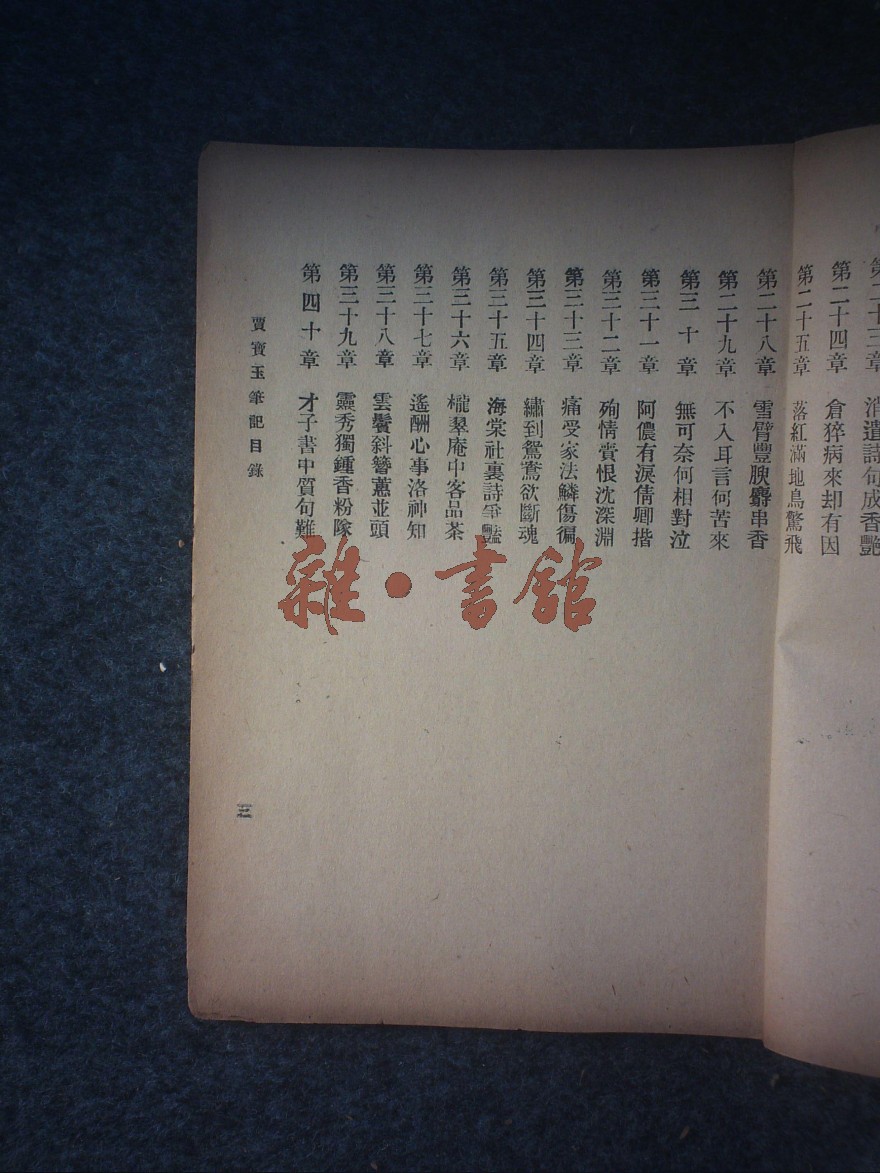 第二十三章　消遣詩句成香艷
第二十四章　倉猝病來却有因
第二十五章　落紅滿地鳥驚飛
第二十八章　雪臂豐腴麝串香
第二十九章　不入耳言何苦來
第三十章　無可奈何相對泣
第三十一章　阿儂有淚倩卿揩
第三十二章　殉情賷恨沈深淵
第三十三章　痛受家法鱗傷徧
第三十四章　繡到鴛鴦欲斷魂
第三十五章　海棠社裏詩爭豔
第三十六章　櫳翠庵中客品茶
第三十七章　遙酬心事洛神知
第三十八章　雲鬢斜簪蕙並頭
第三十九章　靈秀獨鍾香粉隊
第四十章　才子書中質句難
賈寶玉筆記目錄
三
雜·書館